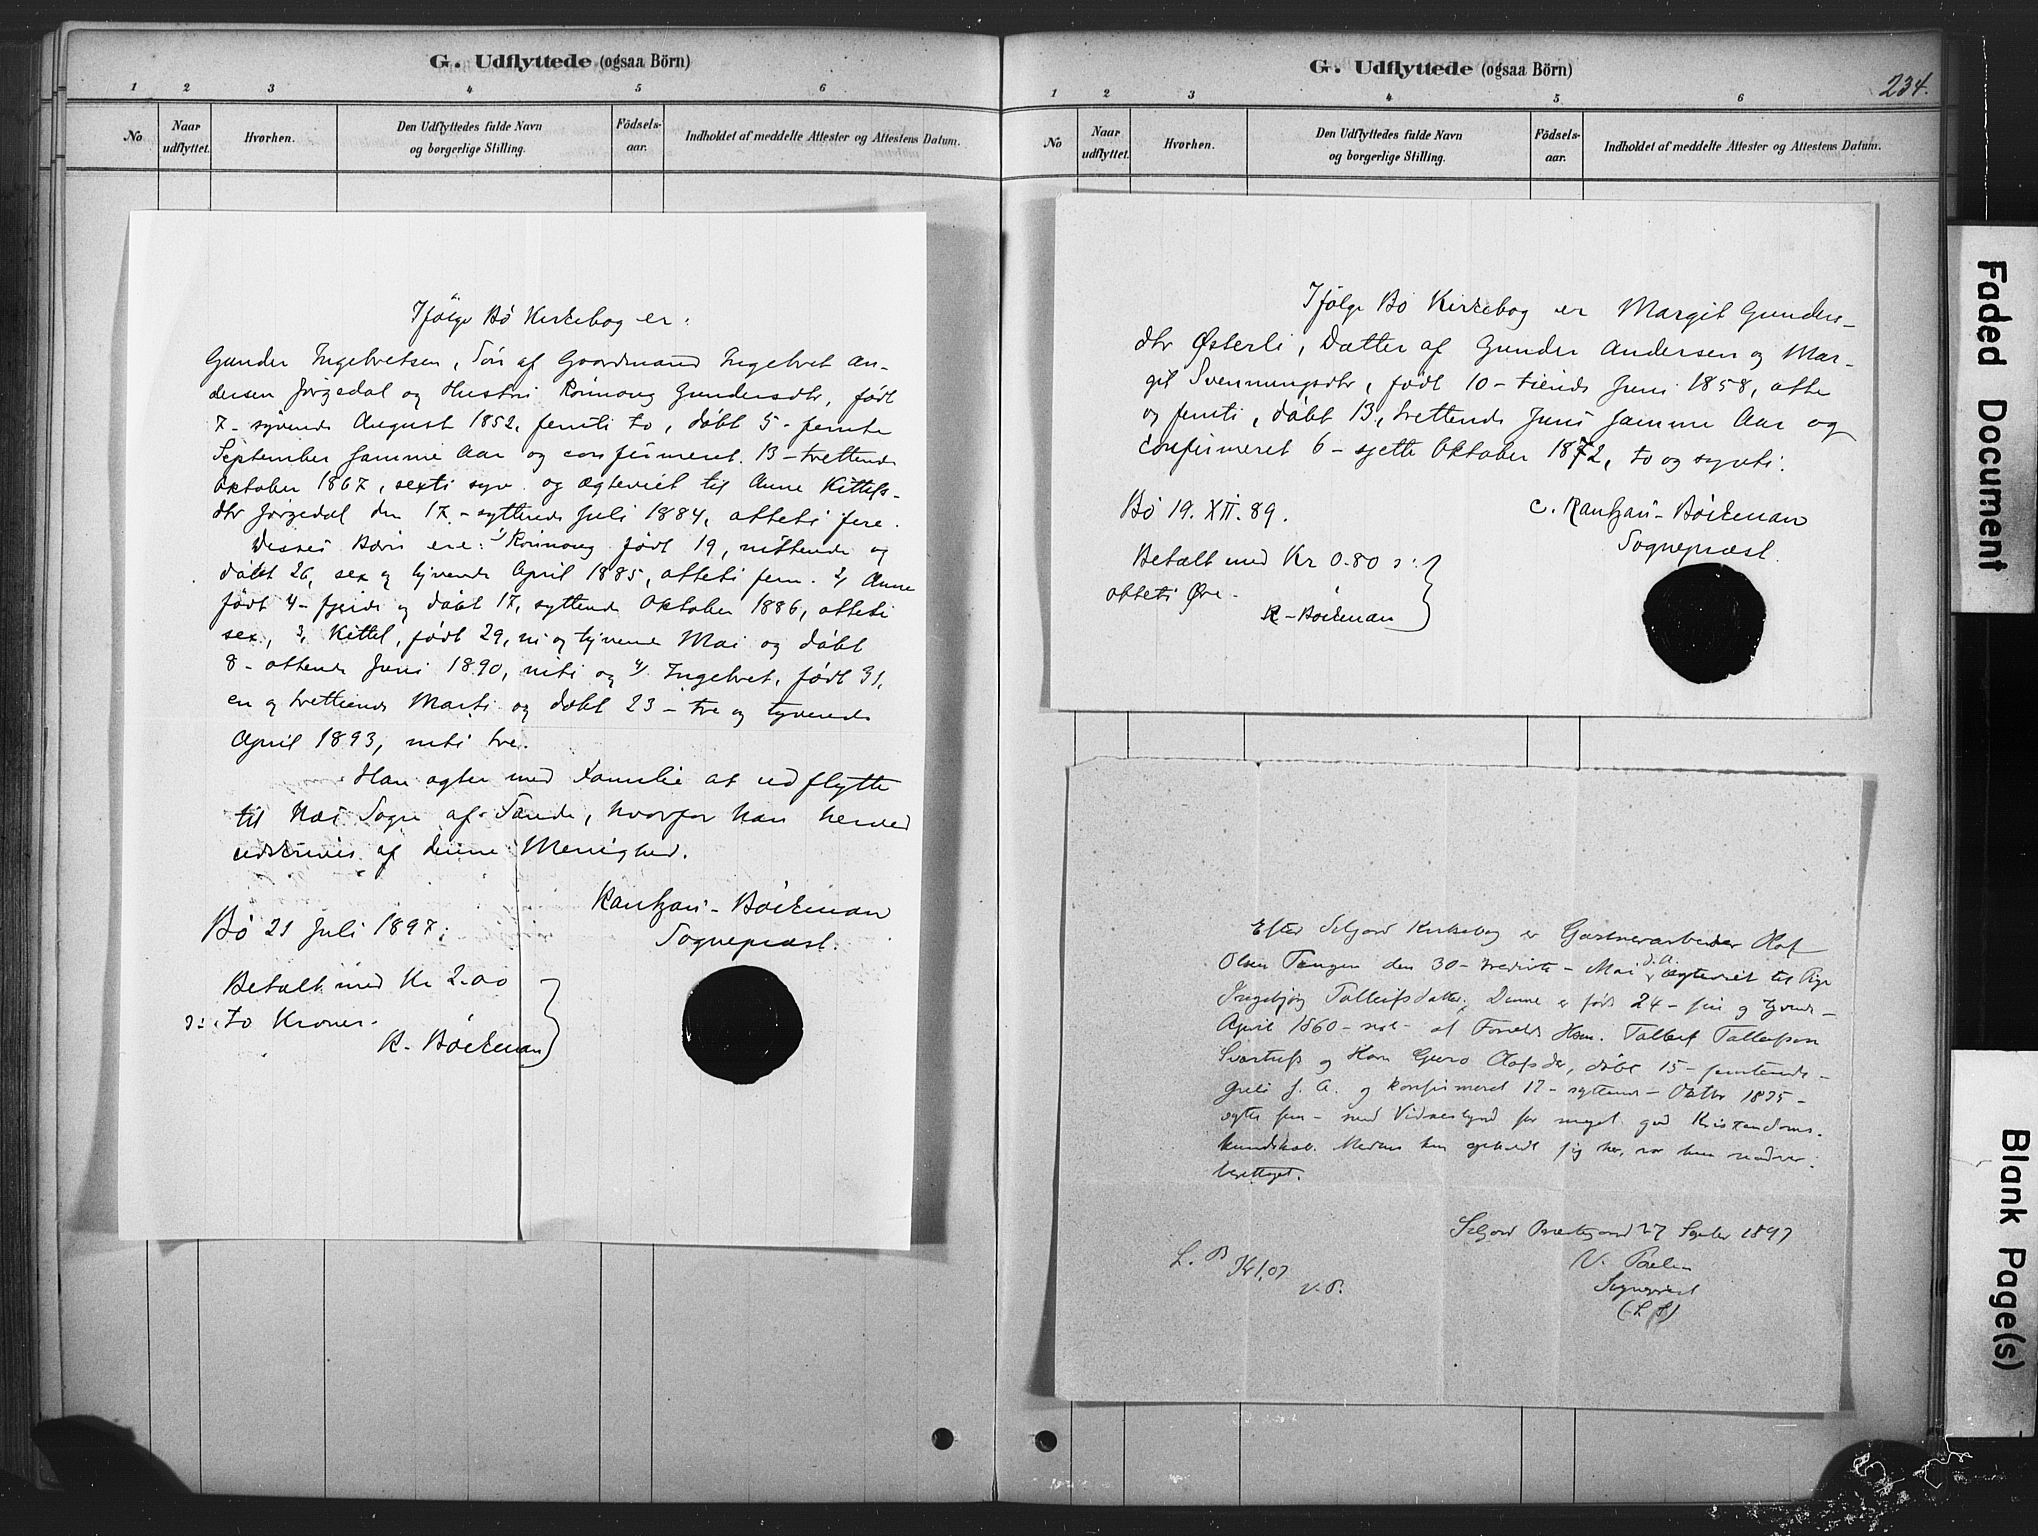 G. Udflyttede (ogsaa Börn)
1 2 3 4 5 6
No
Naar udflyttet.
Hvorhen.
Den Udflyttedes fulde Navn og borgerlige Stilling.
Födsels-aar.
Indholdet af meddelte Attester og Attestens Datum.
Ifölge Bö Kirkebog er:
Gunder Ingebretsen, Sön af Gaardmand Ingebret An-
dersen Jörgedal og Hustru Rönnoug Gundersdtr, födt
7 - syvende August 1852, femti to, döbt 5 - femte
September samme Aar og confirmeret 13 - trettende
Oktober 1867, sexti syv og ægteviet til Anne Kittels-
dtr Jörgedal den 17 - syttende Juli 1884, otteti fire.
Disses Börn ere: 1/ Rönnoug födt 19, nittende og
döbt 26, sex og tyvende April 1885, otteti fem. 2/ Anne
födt 4 - fjerde og döbt 17, syttende Oktober 1886, otteti
sex, 3, Kittel, födt 29, ni og tyvende Mai og döbt
8 - ottende Juni 1890, niti og 4/ Ingebret, födt 31,
en og trettiende Marts og döbt 23 - tre og tyvende
April 1893, niti tre.
Han agter med Familie at udflytte
til Næs Sogn af Sande, hvorfor han herved
udskrives af denne Menighed.
Rantzau - Böckman
Sognepræst.
Bö 21 Juli 1897;
Betalt med Kr 2.00
ɔ: to Kroner.
R - Böckman
G. Udflyttede (ogsaa Börn)
234.
1 2 3 4 5 6
No
Naar udflyttet.
Hvorhen.
Den Udflyttedes fulde Navn og borgerlige Stilling.
Födsels-aar.
Indholdet af meddelte Attester og Attestens Datum.
Ifölge Bö Kirkebog er Margit Gunders-
dtr Østerli, Datter af Gunder Andersen og Mar-
git Svenningsdtr, födt 10 - tiende Juni 1858, otte
og femti, döbt 13, trettende Juni samme Aar og
confirmeret 6 - sjette Oktober 1872, to og syvti.
Bö 19. XII. 89.
C. Rantzau - Böckman
Sognepræst.
Betalt med Kr 0.80 ɔ:
otteti Øre.
R - Böckman
Efter Seljord Kirkebog er Gartnerarbeider Olaf
Olsen Tangen den 30 - tredivte - Mai d. A. ægteviet til Pige
Ingebjörg Talleifsdatter; Denne er födt 24 - fire og tyvende -
April 1860 - af Forældre Hsm. Talleif Talleifsen
og Kone Guro Olafsdtr, döbt 15 - femtende -
Juli s. A. og konfirmeret 17 - syttende - Oktbr 1875 -
sytti fem - med Vidnesbyrd for meget god Kristendoms-
kundskab. Medens hun opholdt sig her, var hun
Seljord Prestegaard 27 Septbr 1897
Sogneprest
(L. S.)
L. B Kr 1,07
V. P.
Faded Document
Blank Page(s)